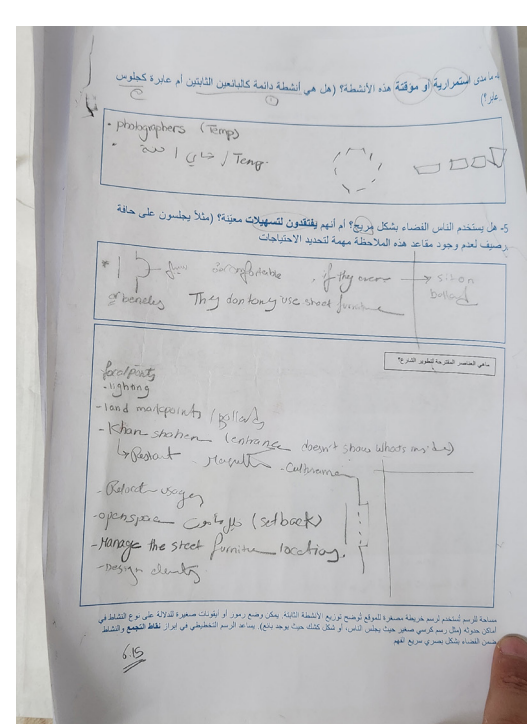 4- ما مدى استمرارية أو مؤقتة هذه الأنشطة؟ (هل هي أنشطة دائمة كالبائعين الثابتين أم عابرة كجلوس
عابر؟)
• photographers (Temp)
• شاي / Temp.
5- هل يستخدم الناس الفضاء بشكل مريح؟ أم أنهم يفتقدون لتسهيلات معينة؟ (مثلاً يجلسون على حافة
رصيف لعدم وجود مقاعد هذه الملاحظة مهمة لتحديد الاحتياجات
few if they → sit on
of benches They don't use street furniture bollard
ماهي العناصر المقترحة لتطوير الشارع؟
focal points
- lighting
- land mark points / bollards
- Khan (entrance doesn't show whats inside)
- Relocate usages
- open space (setback)
- Manage the street furniture location.
- Design elements
مساحة للرسم تستخدم لرسم خريطة مصغرة للموقع توضح توزيع الأنشطة الثابتة. يمكن وضع رموز أو ايقونات صغيرة للدلالة على نوع النشاط في
أماكن حدوثه (مثل رسم كرسي صغير حيث يجلس الناس، أو شكل كشك حيث يوجد بائع). يساعد الرسم التخطيطي في ابراز نقاط التجمع والنشاط
ضمن الفضاء بشكل بصري سريع الفهم
6:15